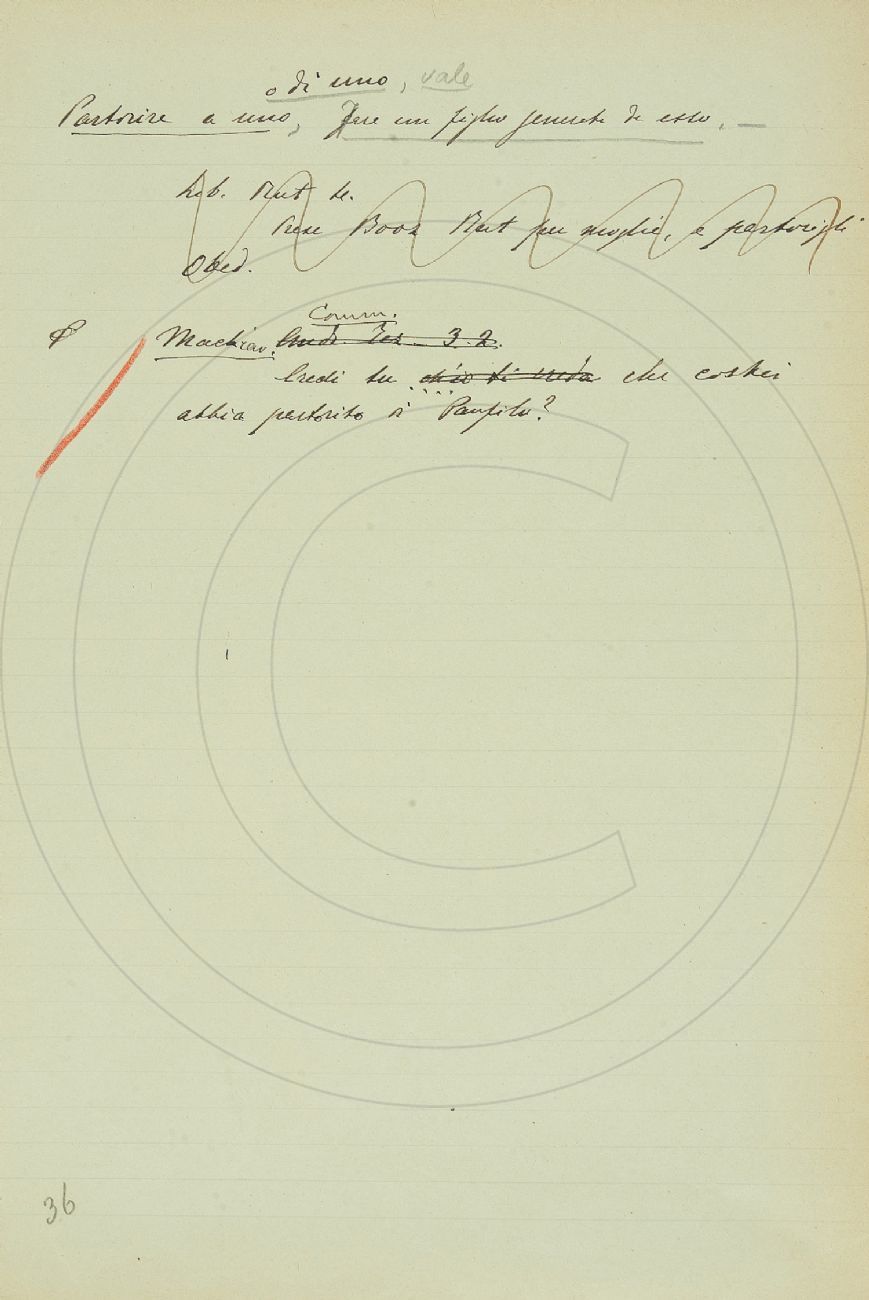 o di uno, vale
Partorire a uno, Fare un figlio generato da esso. —
Lib. Rut
Prese Booz Rut per moglie, e partorigli
Obed.
Comm.
Machiav. Andr. Ter. 3. 2.
Credi tu ch'io ti creda che costei
abbia partorito di Panfilo?
36